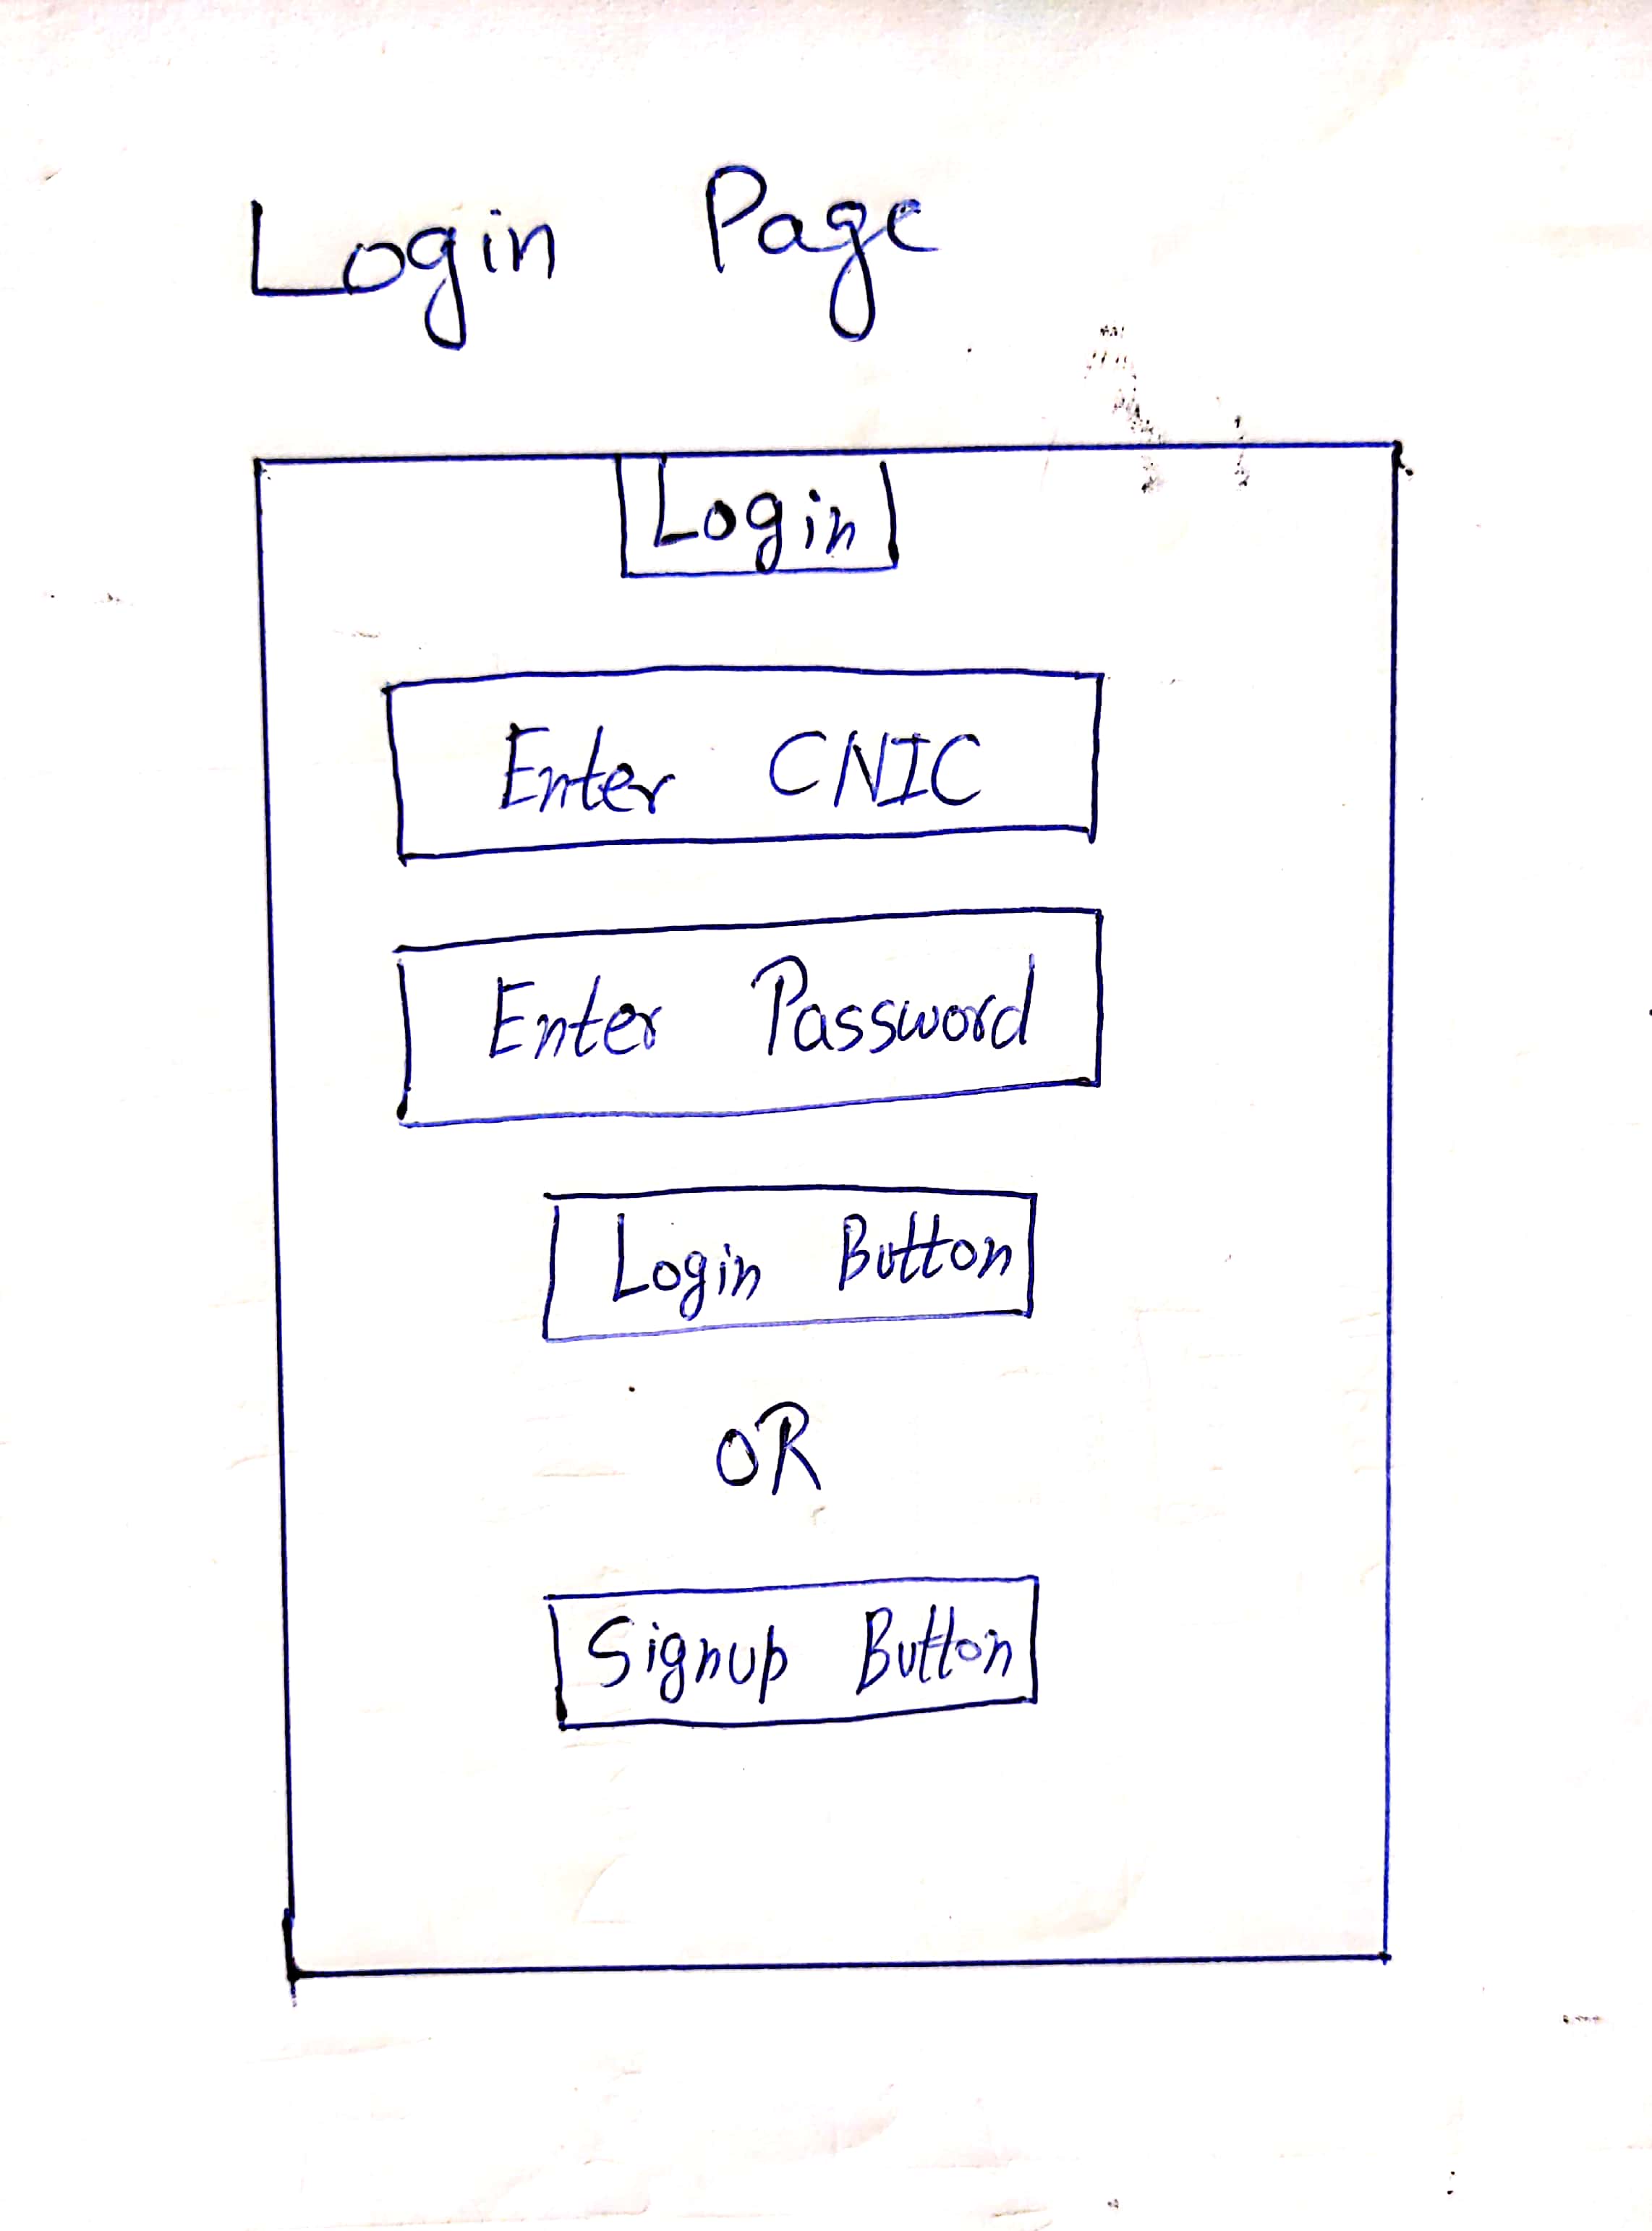 Login Page
Login
Enter CNIC
Enter Password
Login Button
OR
Signup Button